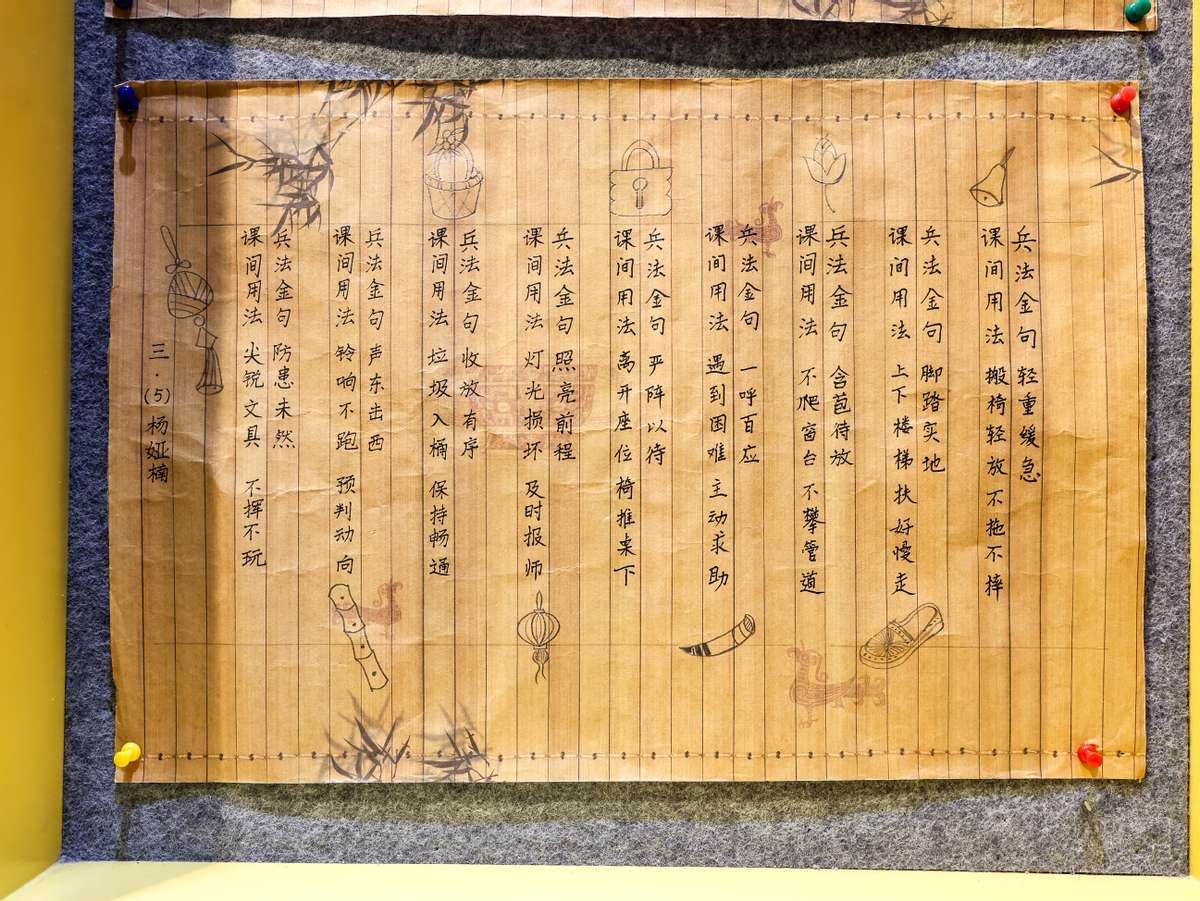 兵法金句 轻重缓急
课间用法 搬椅轻放 不拖不摔
兵法金句 脚踏实地
课间用法 上下楼梯 扶好慢走
兵法金句 含苞待放
课间用法 不爬窗台 不攀管道
兵法金句 一呼百应
课间用法 遇到困难 主动求助
兵法金句 严阵以待
课间用法 离开座位 椅推桌下
兵法金句 照亮前程
课间用法 灯光损坏 及时报师
兵法金句 收放有序
课间用法 垃圾入桶 保持畅通
兵法金句 声东击西
课间用法 铃响不跑 预判动向
兵法金句 防患未然
课间用法 尖锐文具 不挥不玩
三·(5)杨娅楠